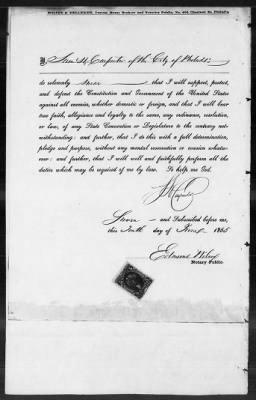 I, Sam. H. Carpenter of the City of Philada
do solemnly swear that I will support, protect,
and defend the Constitution and Government of the United States
against all enemies, whether domestic or foreign, and that I will bear
true faith, allegiance and loyalty to the same, any ordinance, resolution,
or law, of any State Convention or Legislature to the contrary not-
withstanding: and further, that I do this with a full determination,
pledge and purpose, without any mental reservation or evasion whatso-
ever: and further, that I will well and faithfully perform all the
duties which may be required of me by law. So help me God.
Sworn and Subscribed before me,
this day of 1865
Notary Public